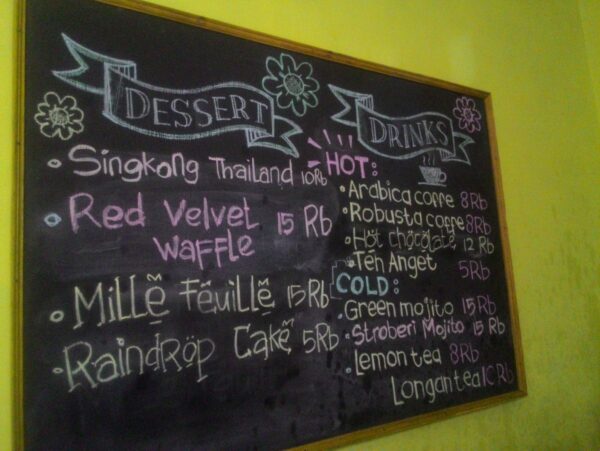 DESSERT
• Singkong Thailand 10Rb
• Red Velvet 15 Rb
Waffle
• Mille Feuille 15Rb
• Raindrop Cake 5Rb
DRINKS
HOT:
• Arabica coffe 8Rb
• Robusta coffe 8Rb
• Hot chocolate 12 Rb
• Teh Anget 5Rb
COLD:
• Green mojito 15Rb
• Stroberi Mojito 15 Rb
• Lemon tea 8Rb
Longan tea 10 Rb